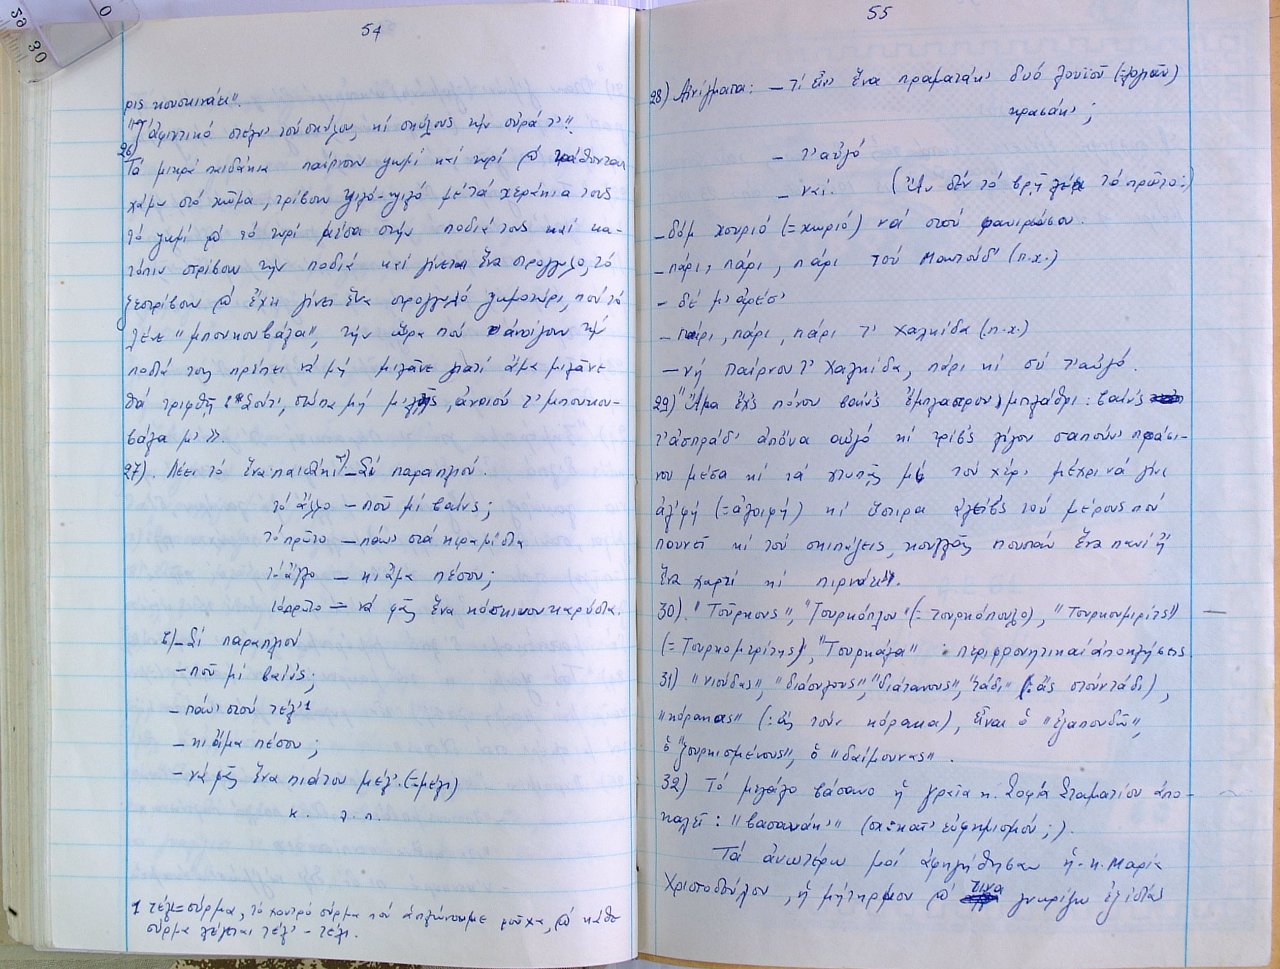 54
ρις κουσκινάκι".
"Τ' ἀφιντικό στέλν' τοὺ σκύλου, κί σκύλους τὴν οὐρά τ'".
26) Τά μικρά παιδάκια παίρνουν ψωμί καί τυρί & κάθονται
χάμω στό χῶμα, τρίβουν ψιλό-ψιλό μέ τά χεράκια τους
τό ψωμί & τό τυρί μέσα στήν ποδιά τους καί κα-
τόπιν στρίβουν τήν ποδιά καί γίνεται ἕνα στρογγυλό, τό
ξεστρίβουν & ἔχει γίνει ἕνα στρογγυλό ψωμοτύρι, πού τό
λένε "μπουκουβάλα", τήν ὥρα πού ἀνοίγουν τήν
ποδιά τους πρέπει νά μή μιλᾶνε γιατί ἅμα μιλᾶνε
θά τριφθῆ "Σούτ', σώπα μή μιλᾷς, ἀνοιού τ' μπουκου-
βάλα μ'».
27). Λέει τό ἕνα παιδάκι – Σί παραπλιού.
τό ἄλλο – ποῦ μί βαίνς;
τό πρῶτο – πάν' στά κιραμίδια
τό ἄλλο – κι ἅμα πέσου;
τό πρῶτο – νά φᾷς ἕνα κόσκινου καρύδια.
ἤ – Σί παραπλιού
– ποῦ μί βαίνς;
– πάν' στού τέλ'1
– κι ἅμα πέσου;
– νά φᾷς ἕνα πιάτου μέλ'. (=μέλι)
κ. λ. π.
1 τέλι= σύρμα, τό χοντρό σύρμα πού ἁπλώνουμε ροῦχα, & κάθε
σύρμα λέγεται τέλ' – τέλι.
55
28) Αἰνίγματα: – Τί εἶν' ἕνα πραματάκ' δυό λουϊοῦ (=λογιῶν)
κρασάκ';
– τ' αὐγό
– ναί. (Ἄν δέν τό βρῆ λέει τό πρῶτο:)
– δόμ χουριό (=χωριό) νά στού φανιρώσου.
– πάρι, πάρι, πάρι τού Μαντούδ' (π.χ.)
– δέ μ' ἀρέσ'
– πάρι, πάρι, πάρι τ' Χαλκίδα (π.χ.)
– νή παίρνου τ' Χαλκίδα, πάρι κί σύ τ' αὐγό.
29) "Ἅμα ἔχς πόνου βαίνς ἔμπλαστρου, μπλάθρι: βαίνς
τ' ἀσπράδ' ἀπόνα αὐγό κί τρίβς λίγου σαπούν' πράσι-
νου μέσα κί τά χτυπᾷς μί τού χέρ' μέχρι νά γίν'
ἀλ'φή (=ἀλοιφή) κί ὕστιρα ἀλείβς τού μέρους πού
πουνεῖ κί τού σκιπάζεις, κουλλᾷς πουπάν ἕνα πανί ἤ
ἕνα χαρτί κί πιρνάει".
30). "Τοῦρκους", "Τουρκόπλου" (= τουρκόπουλο), "Τουρκουμιρίτς"
(= Τουρκομερίτης), "Τουρκάλα" : περιφρονητικαί ἀποκλήσεις
31) "νιούδας", "διάουλους", "διάτανους", "τάδι" (: ἄς στούν τάδι),
"κόρακας" (: ἄς τούν κόρακα), εἶναι ὁ "ἐξαπουδῶ",
ὁ "ξουρκισμένους", ὁ "δαίμουνας".
32) Τό μεγάλο βάσανο ἡ γραῖα κ. Σοφία Σταματίου ἀπο-
καλεῖ: "βασανάκ'" (σχ= κατ' εὐφημισμόν;).
Τά ἀνωτέρω μοί ἀφηγήθησαν ἡ κ. Μαρία
Χριστοδούλου, ἡ μήτηρ μου & τινα γνωρίζω ἐξ ἰδίας